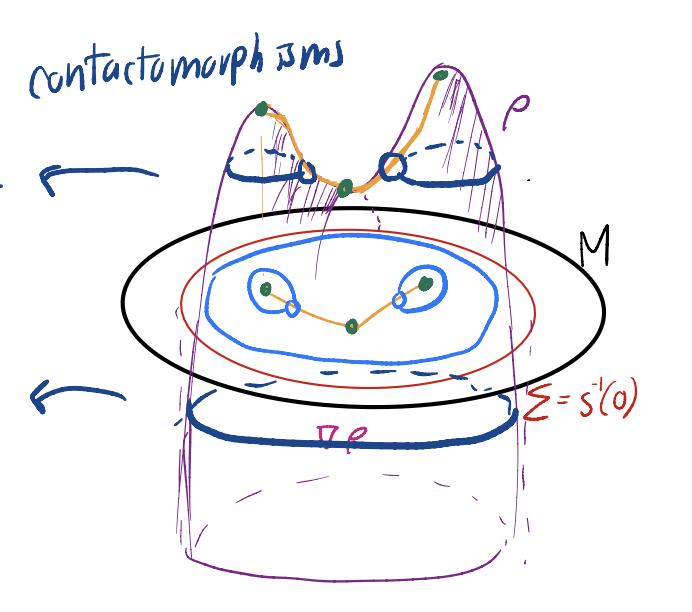 contactomorphisms
ρ
M
Σ = s⁻¹(0)
∇ρ